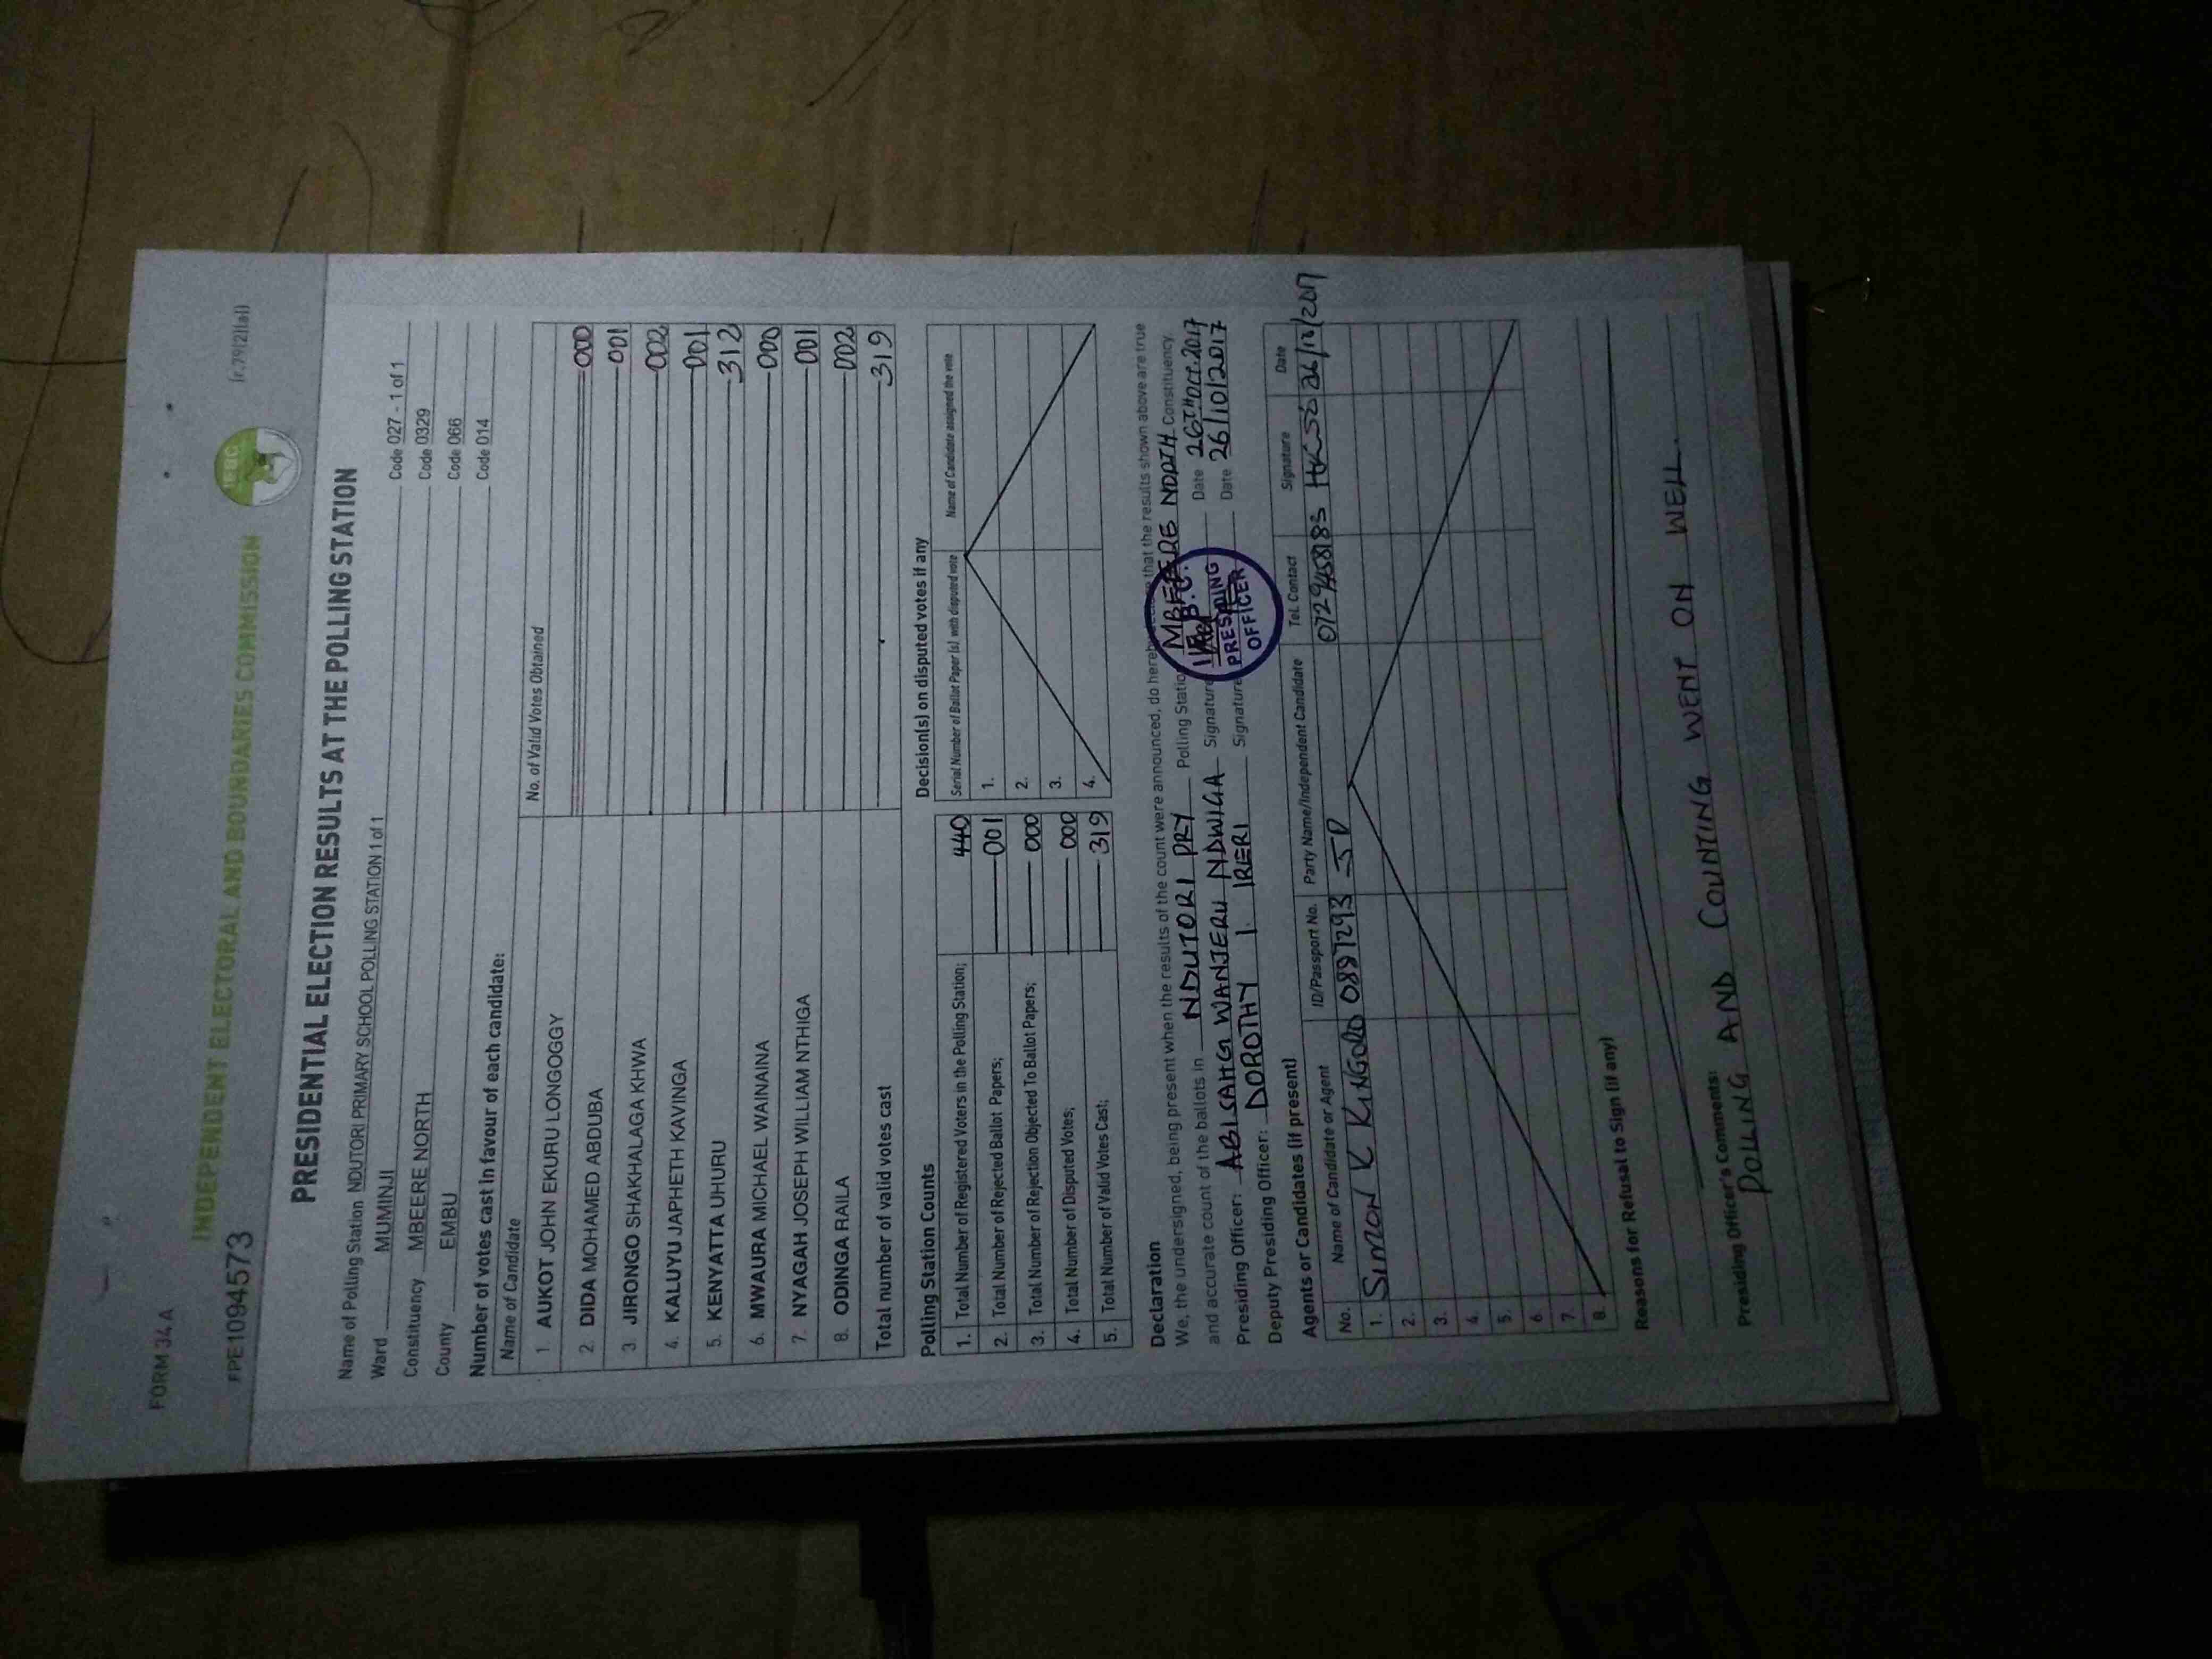 FORM 34A
INDEPENDENT ELECTORAL AND BOUNDARIES COMMISSION
IEBC
(r.79(2)(a))
FPE1094573
PRESIDENTIAL ELECTION RESULTS AT THE POLLING STATION
Name of Polling Station NDUTORI PRIMARY SCHOOL POLLING STATION 1 of 1 Code 027 - 1 of 1
Ward MUMINJI Code 0329
Constituency MBEERE NORTH Code 066
County EMBU Code 014
Number of votes cast in favour of each candidate:
Name of Candidate No. of Valid Votes Obtained
1 AUKOT JOHN EKURU LONGOGGY 000
2. DIDA MOHAMED ABDUBA 001
3 JIRONGO SHAKHALAGA KHWA 002
4. KALUYU JAPHETH KAVINGA 001
5. KENYATTA UHURU 312
6. MWAURA MICHAEL WAINAINA 000
7. NYAGAH JOSEPH WILLIAM NTHIGA 001
8. ODINGA RAILA 002
Total number of valid votes cast 319
Polling Station Counts
1. Total Number of Registered Voters in the Polling Station; 440
2. Total Number of Rejected Ballot Papers; 001
3. Total Number of Rejection Objected To Ballot Papers; 000
4. Total Number of Disputed Votes; 000
5. Total Number of Valid Votes Cast; 319
Decision(s) on disputed votes if any
Serial Number of Ballot Paper (s) with disputed vote Name of Candidate assigned the vote
1.
2.
3.
4.
Declaration
We, the undersigned, being present when the results of the count were announced, do hereby that the results shown above are true
and accurate count of the ballots in NDUTORI PRY Polling Station MBEERE NORTH Constituency.
Presiding Officer: WANJERU NDWIGA Signature Date 26TH OCT. 2017
Deputy Presiding Officer: DOROTHY I. IRERI Signature Date 26/10/2017
PRESIDING
OFFICER
Agents or Candidates (if present)
No. Name of Candidate or Agent ID/Passport No. Party Name/Independent Candidate Tel. Contact Signature Date
1. SIMON K 26/10/2017
2.
3.
4.
5.
6
7.
8.
Reasons for Refusal to Sign (if any)
Presiding Officer's Comments:
POLLING AND COUNTING WENT ON WELL.